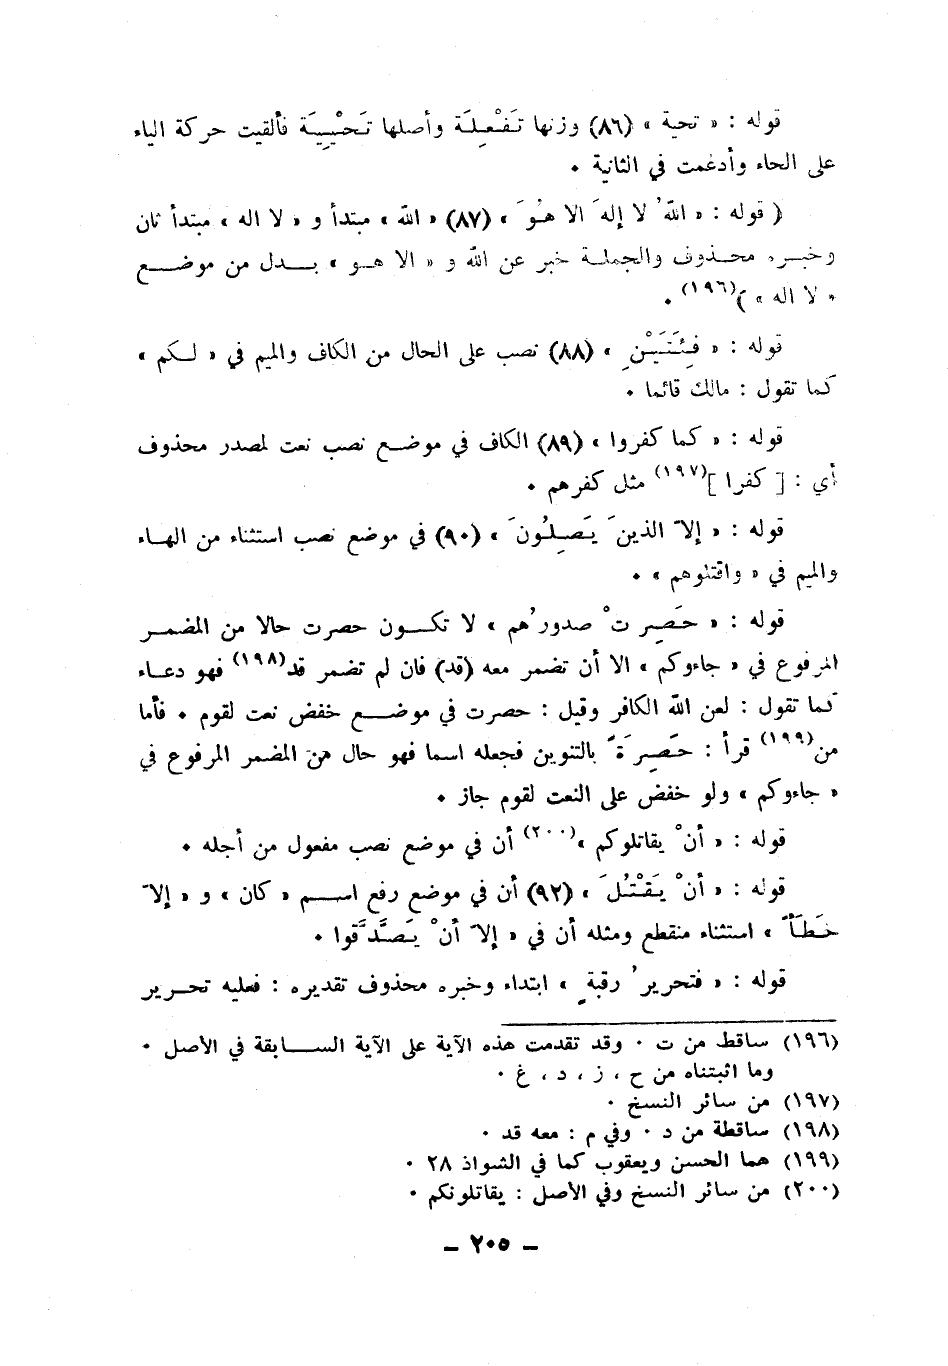 قوله : « تحية » (٨٦) وزنها تَفْعِلَة وأصلها تَحْيِيَة فألقيت حركة الياء
على الحاء وأدغمت في الثانية ٠
( قوله : « اللهُ لا إلهَ الا هُوَ » (٨٧) « الله » مبتدأ و « لا اله » مبتدأ ثان
وخبره محذوف والجملة خبر عن الله و « الا هو » بدل من موضع
« لا اله » )(١٩٦) ٠
قوله : « فِئَتَيْنِ » (٨٨) نصب على الحال من الكاف والميم في « لكم »
كما تقول : مالك قائما ٠
قوله : « كما كفروا » (٨٩) الكاف في موضع نصب نعت لمصدر محذوف
أي : [ كفرا ](١٩٧) مثل كفرهم ٠
قوله : « إلاّ الذينَ يَصِلُونَ » (٩٠) في موضع نصب استثناء من الهاء
والميم في « واقتلوهم » ٠
قوله : « حَصِرتْ صدورُهم » لا تكون حصرت حالا من المضمر
المرفوع في « جاءوكم » الا أن تضمر معه (قد) فان لم تضمر قد(١٩٨) فهو دعاء
كما تقول : لعن الله الكافر وقيل : حصرت في موضع خفض نعت لقوم ٠ فأما
من(١٩٩) قرأ : حَصِرَةً بالتنوين فجعله اسما فهو حال من المضمر المرفوع في
« جاءوكم » ولو خفض على النعت لقوم جاز ٠
قوله : « أنْ يقاتلوكم »(٢٠٠) أن في موضع نصب مفعول من أجله ٠
قوله : « أنْ يَقْتُلَ » (٩٢) أن في موضع رفع اسم « كان » و « إلاّ
خَطَأً » استثناء منقطع ومثله أن في « إلاّ أنْ يَصَّدَّقوا ٠
قوله : « فتحريرُ رقبةٍ » ابتداء وخبره محذوف تقديره : فعليه تحرير
(١٩٦) ساقط من ت ٠ وقد تقدمت هذه الآية على الآية السابقة في الأصل ٠
وما اثبتناه من ح ، ز ، د ، غ ٠
(١٩٧) من سائر النسخ ٠
(١٩٨) ساقطة من د ٠ وفي م : معه قد ٠
(١٩٩) هما الحسن ويعقوب كما في الشواذ ٢٨ ٠
(٢٠٠) من سائر النسخ وفي الأصل : يقاتلونكم ٠
– ٢٠٥ –